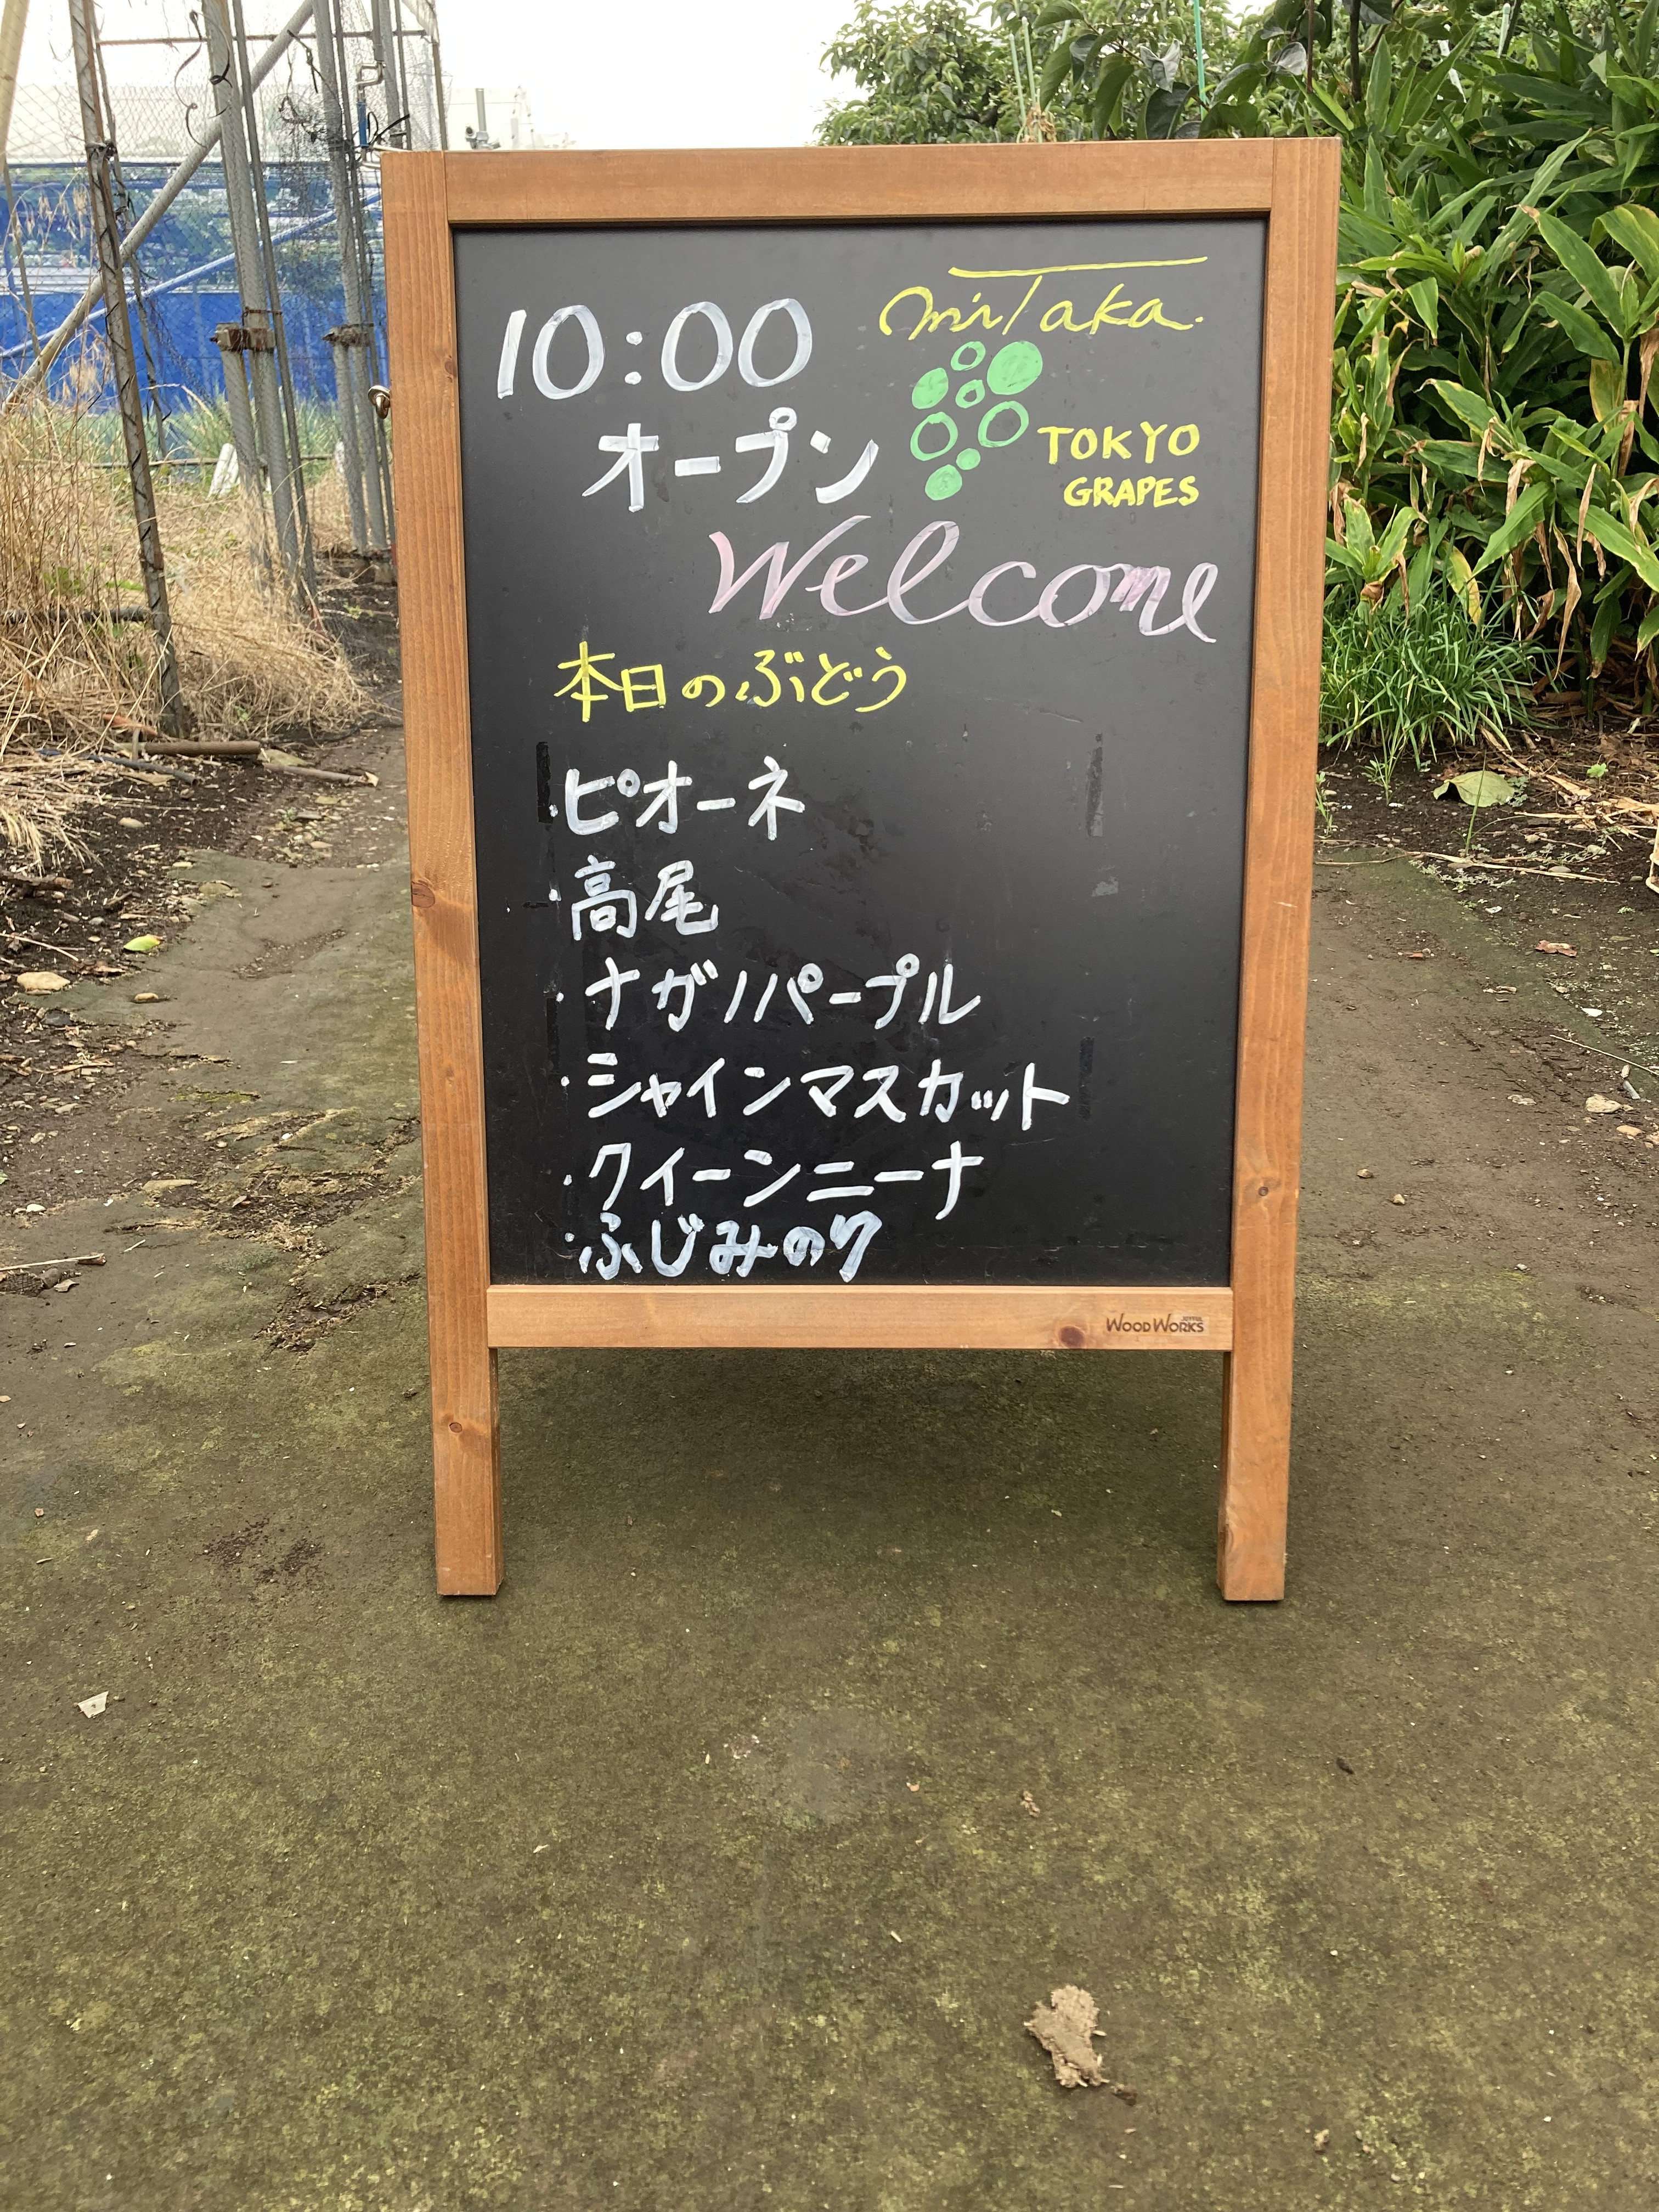 10:00
オープン
miTaka.
TOKYO
GRAPES
Welcome
本日のぶどう
・ピオーネ
・高尾
・ナガノパープル
・シャインマスカット
・クイーンニーナ
・ふじみのり
WOOD WORKS